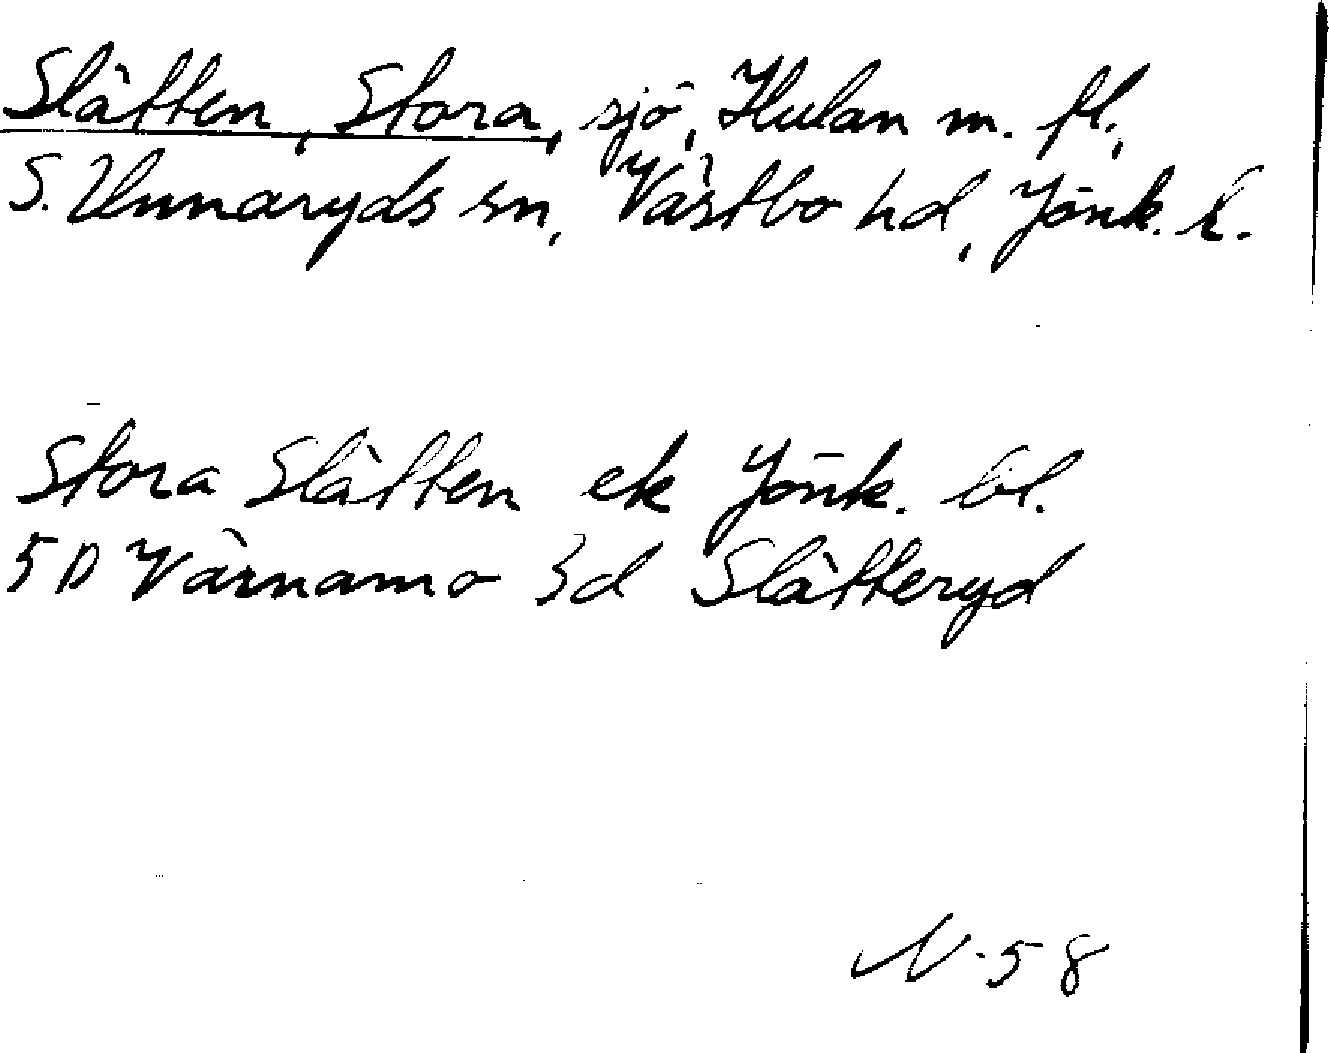 Slätten, Stora, sjö, Hulan m. fl.,
S. Unnaryds sn, Västbo hd, Jönk. l.
Stora Slätten ek Jönk. bl.
5D Värnamo 3d Slätteryd
N-58